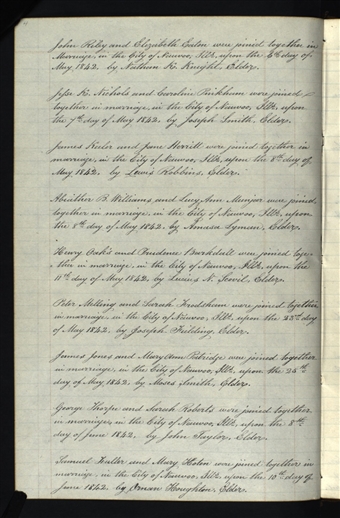 John Riley and Elizabeth Eaton were joined together in
Marriage, in the City of Nauvoo, Ills, upon the 6th day of
May 1842. by Nathan K. Knight, Elder.
Jesse K. Nichols and Caroline Pinkham were joined
together in marriage, in the City of Nauvoo, Ills, upon
the 7th day of May 1842, by Joseph Smith, Elder.
James and Jane Herritt were joined together in
marriage, in the City of Nauvoo, Ills, upon the 8th day of
May 1842, by Lewis Robbins, Elder.
B. Williams and Lucy Ann were joined
together in marriage, in the City of Nauvoo, Ills, upon
the 8th day of May 1842, by Amasa Lyman, Elder.
Henry Oaks and Prudence Barkdull were joined toge-
ther in marriage, in the City of Nauvoo, Ills, upon the
11th day of May 1842, by Lucius N. Elder.
Peter Melling and Sarah were joined together
in marriage, in the City of Nauvoo, Ills, upon the 23rd day
of May 1842, by Joseph Fielding, Elder.
James Jones and Mary Ann Petridge were joined together
in marriage, in the City of Nauvoo, Ills, upon the 24th
day of May 1842, by Moses Smith, Elder.
George Thorpe and Sarah Roberts were joined together
in marriage, in the City of Nauvoo, Ills, upon the 8th
day of June 1842, by John Taylor, Elder.
Samuel and Mary were joined together in
marriage, in the City of Nauvoo, Ills, upon the 10th day of
June 1842, by Ornan Houghton, Elder.